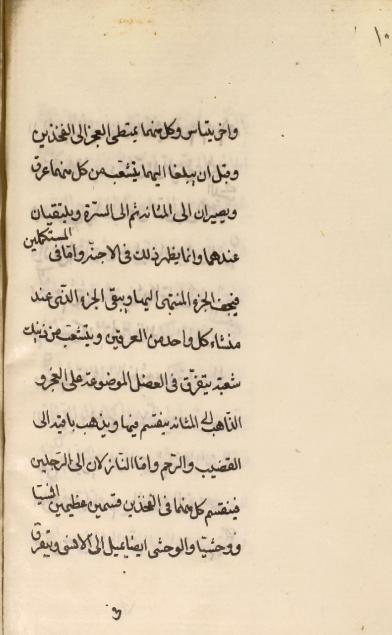 ١٠
واخر يتياسر وكل منهما يمتطى العجز الى الفخذين
وقبل ان يبلغا اليهما يتشعب من كل منهما عرق
ويصيران الى المثانة ثم الى السرة ويلتقيان
عندها وانما يظهر ذلك فى الاجنة واما فى المستكملين
فيجف الجزء المنتهى اليها ويبقى الجزء الذى عند
منشاء كل واحد من العرقين ويتشعب من ذينك
شعبة يتفرق فى العضل الموضوعة على العجز و
الذاهب الى المثانة ينقسم فيها ويذهب باقيه الى
القضيب والرحم واما النازلان الى الرجلين
فينقسم كل منهما فى الفخذين قسمين عظيمين انسيا
ووحشيا والوحشى ايضا يميل الى الانسى ويتفرق